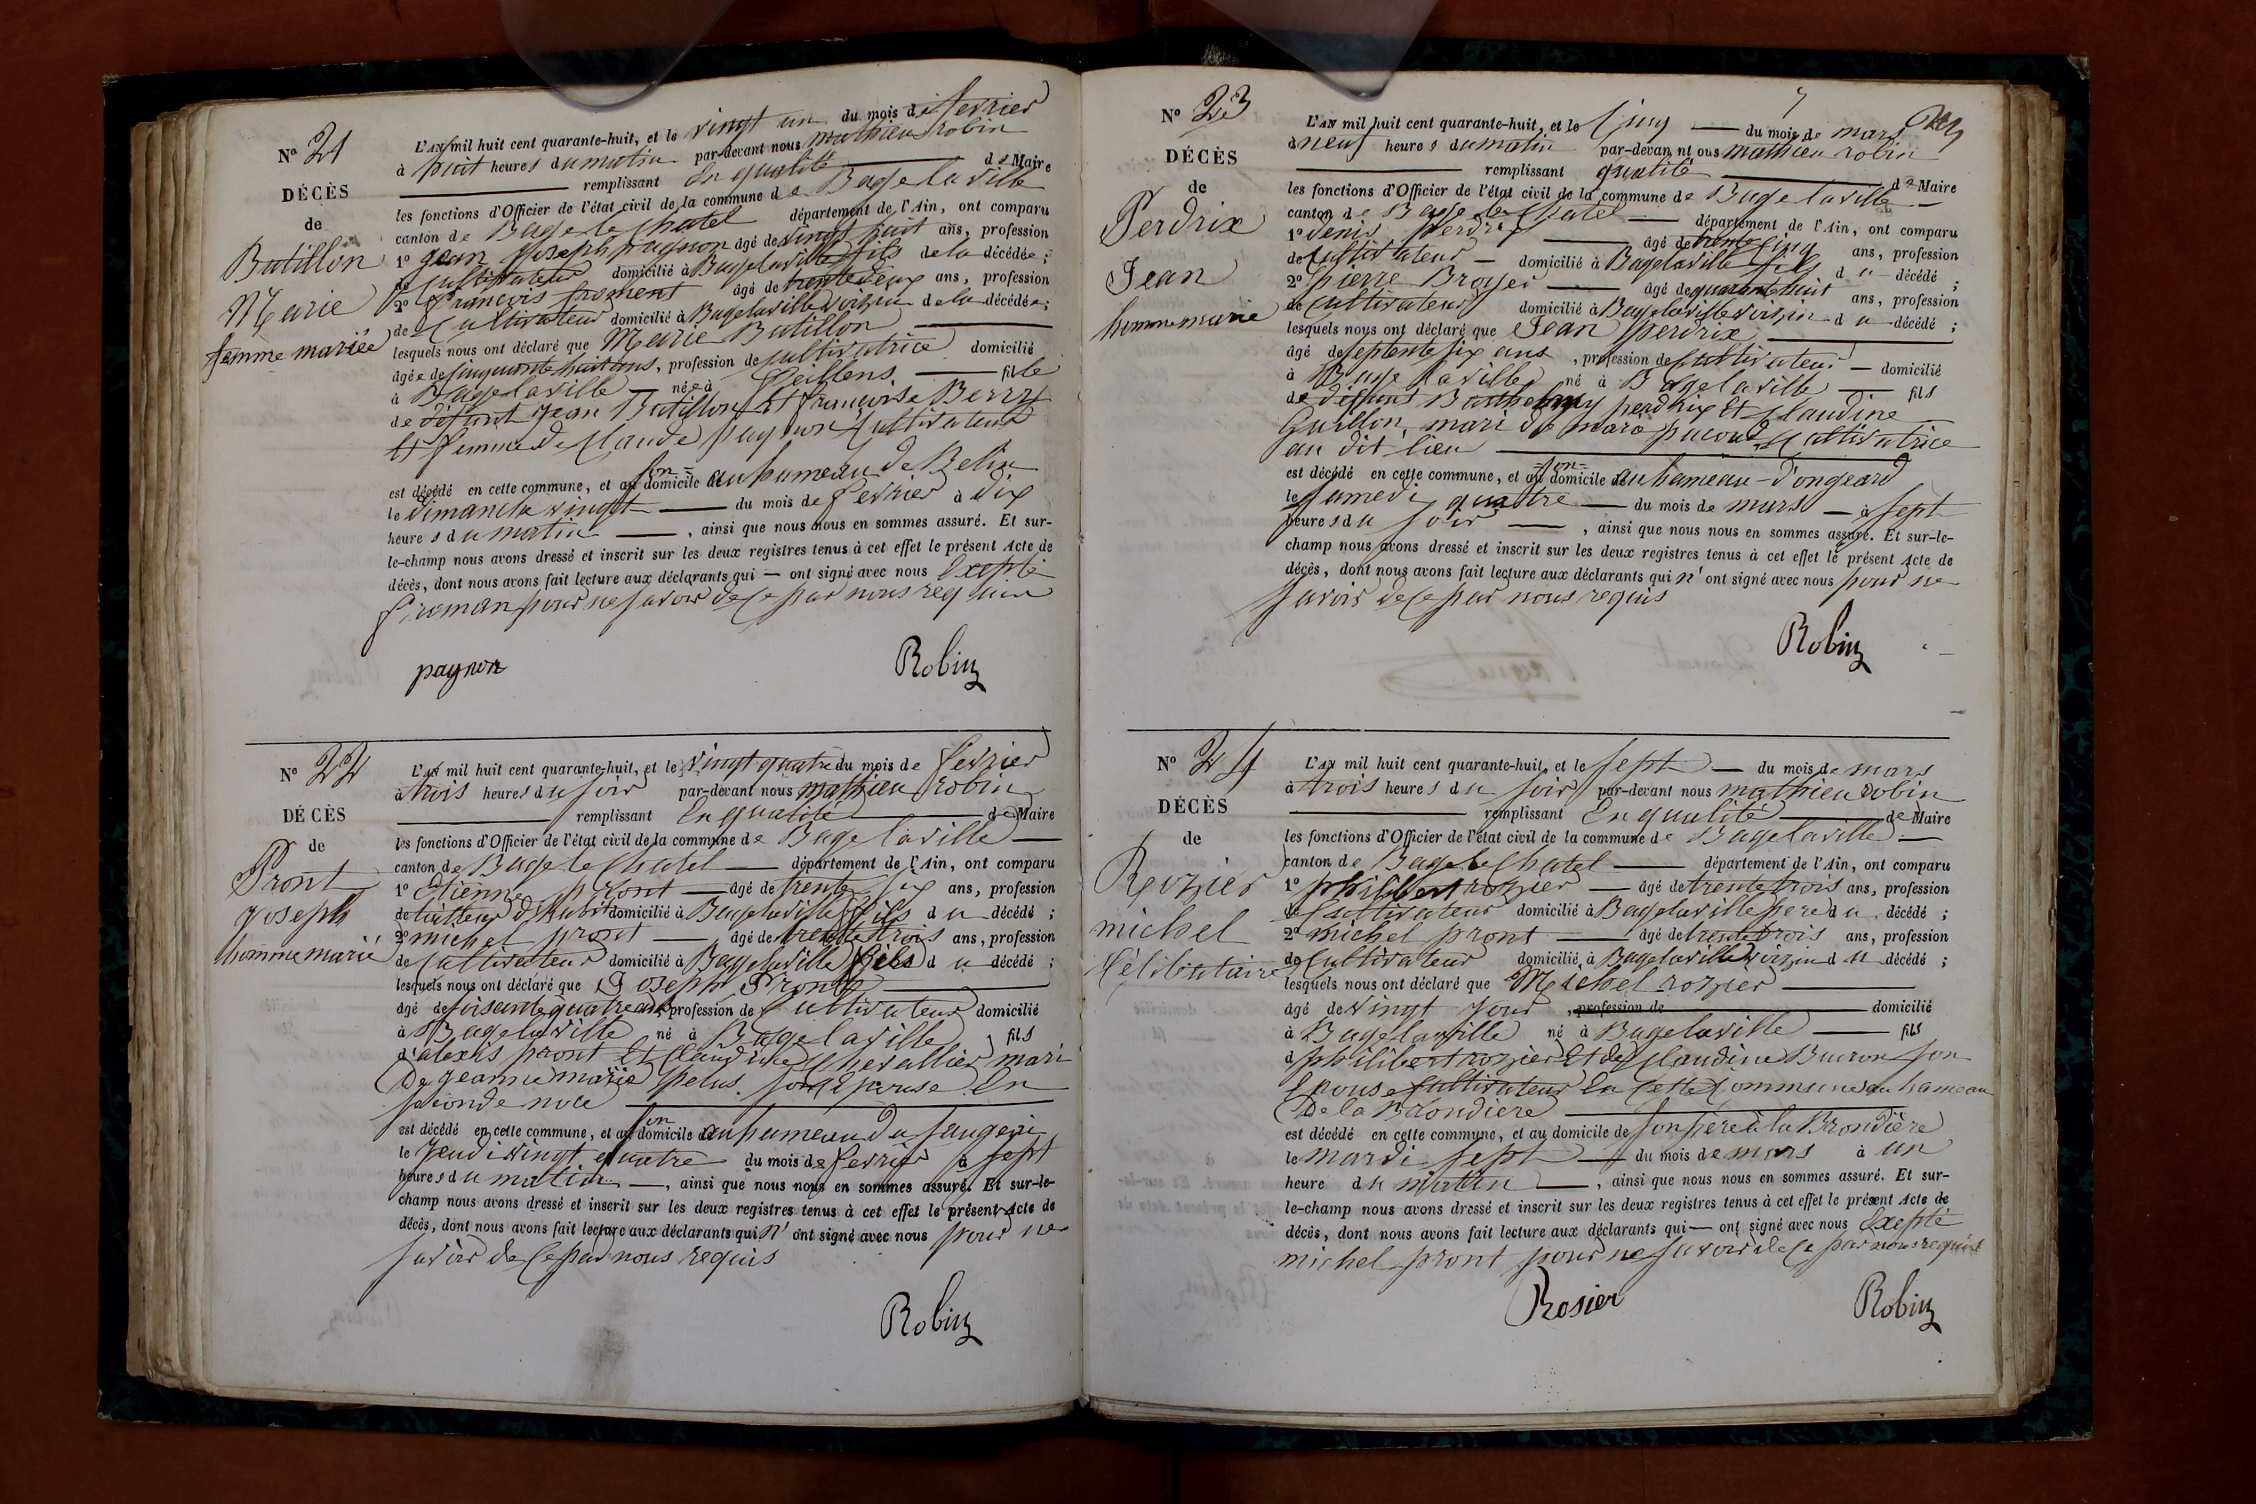 N° 21
DÉCÈS
de
Batillon
Marie
femme mariée
L'AN mil huit cent quarante-huit, et le vingt un du mois de fevrier
à huit heures du matin par-devant nous mathieu robin
remplissant En qualité de Maire
les fonctions d'Officier de l'état civil de la commune de Bage la ville
canton de Bage le Chatel département de l'Ain, ont comparu
1° jean joseph pagnon âgé de vingt huit ans, profession
de Cultivateur domicilié à Bagelaville fils de la décédée ;
2° francois froment âgé de trente deux ans, profession
de Cultivateur domicilié à Bagelaville voizin de la décédée ;
lesquels nous ont déclaré que Marie Batillon
âgée de Cinquante huit ans, profession de cultivatrice domicilié
à Bagelaville née à feillens fille
de défunt Jean Batillon Et francoise Berry
Et femme de Claude pagnon Cultivateur
est décédé en cette commune, et au son domicile au hameau de Belin
le dimanche vingt du mois de fevrier à dix
heures du matin, ainsi que nous nous en sommes assuré. Et sur-
le-champ nous avons dressé et inscrit sur les deux registres tenus à cet effet le présent Acte de
décès, dont nous avons fait lecture aux déclarants qui — ont signé avec nous Excepté
froman pour ne savoir de Ce par nous requis
pagnon
Robin
N° 22
DÉCÈS
de
Pront
joseph
homme marié
L'AN mil huit cent quarante-huit, et le vingt quatre du mois de fevrier
à trois heures du soir par-devant nous mathieu Robin
remplissant En qualité de Maire
les fonctions d'Officier de l'état civil de la commune de Bage la ville
canton de Bage le Chatel département de l'Ain, ont comparu
1° Etienne pront âgé de trente six ans, profession
de tailleur d'habit domicilié à Bagelaville fils du décédé ;
2° michel pront âgé de trente trois ans, profession
de Cultivateur domicilié à Bagelaville fils du décédé ;
lesquels nous ont déclaré que Joseph Pront
âgé de soisante quatre ans, profession de Cultivateur domicilié
à Bagelaville né à Bagelaville fils
d'alexis pront Et Claudine Chevallier mari
De jeanne marie pelus son Epouse En
seconde noce
est décédé en cette commune, et au son domicile au hameau du saugeri
le Jeudi vingt quatre du mois de fevrier à sept
heures du matin, ainsi que nous nous en sommes assuré. Et sur-le-
champ nous avons dressé et inscrit sur les deux registres tenus à cet effet le présent Acte de
décès, dont nous avons fait lecture aux déclarants qui n'ont signé avec nous pour ne
savoir de Ce par nous requis
Robin
7
N° 23
DÉCÈS
de
Perdrix
Jean
homme marié
L'AN mil huit cent quarante-huit, et le Cinq du mois de mars
à neuf heures du matin par-devant nous mathieu robin
remplissant qualité de Maire
les fonctions d'Officier de l'état civil de la commune de Bage la ville
canton de Bage le Chatel département de l'Ain, ont comparu
1° denis perdrix âgé de trente Cinq ans, profession
de Cultivateur domicilié à Bagelaville fils du décédé ;
2° pierre Broyer âgé de quarante huit ans, profession
de Cultivateur domicilié à Bagelaville voizin du décédé ;
lesquels nous ont déclaré que Jean perdrix
âgé de septente six ans, profession de Cultivateur domicilié
à Bage laville né à Bage la ville fils
de deffunt Barthelemy perdrix Et Claudine
Guillon, mari de marie pacoud Cultivatrice
au dit lieu
est décédé en cette commune, et au son domicile au hameau d'ongeard
le samedi quatre du mois de mars à sept
heures du soir, ainsi que nous nous en sommes assuré. Et sur-le-
champ nous avons dressé et inscrit sur les deux registres tenus à cet effet le présent Acte de
décès, dont nous avons fait lecture aux déclarants qui n'ont signé avec nous pour ne
savoir de Ce par nous requis
Robin
N° 24
DÉCÈS
de
Rozzier
michel
Célibataire
L'AN mil huit cent quarante-huit, et le sept du mois de mars
à trois heures du soir par-devant nous mathieu robin
remplissant En qualité de Maire
les fonctions d'Officier de l'état civil de la commune de Bagelaville
canton de Bage le Chatel département de l'Ain, ont comparu
1° philibert rozzier âgé de trente trois ans, profession
de Cultivateur domicilié à Bagelaville pere du décédé ;
2° michel pront âgé de trente trois ans, profession
de Cultivateur domicilié à Bagelaville voizin du décédé ;
lesquels nous ont déclaré que Michel rozzier
âgé de vingt jour, profession de domicilié
à Bagelaville né à Bagelaville fils
d philibert rozzier Et de Claudine Buiron son
Epouse Cultivateur En Cette Commune au hameau
De la Brondière
est décédé en cette commune, et au domicile de son père à la Brondière
le mardi sept du mois de mars à un
heure du matin, ainsi que nous nous en sommes assuré. Et sur-
le-champ nous avons dressé et inscrit sur les deux registres tenus à cet effet le présent Acte de
décès, dont nous avons fait lecture aux déclarants qui — ont signé avec nous Excepté
michel pront pour ne savoir de Ce par nous requis
Rosier
Robin